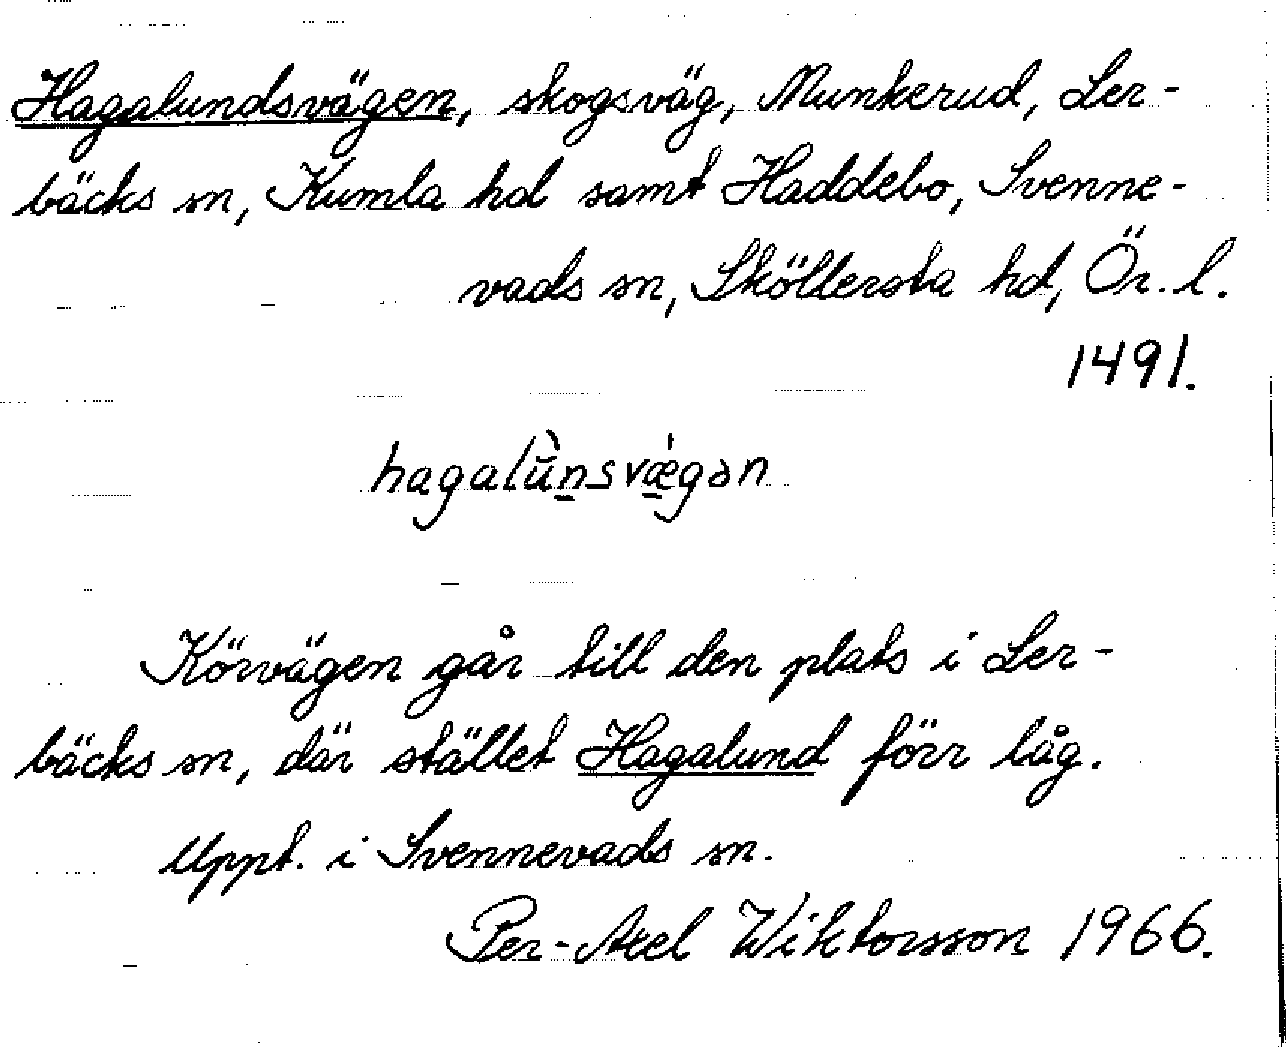 Hagalundsvägen, skogsväg, Munkerud, Ler-
bäcks sn, Kumla hd samt Haddebo, Svenne-
vads sn, Sköllersta hd, Ör. l.
1491.
hagalǜn̲svǽ̲gən
Körvägen går till den plats i Ler-
bäcks sn, där stället Hagalund förr låg.
Uppt. i Svennevads sn.
Per-Axel Wiktorsson 1966.